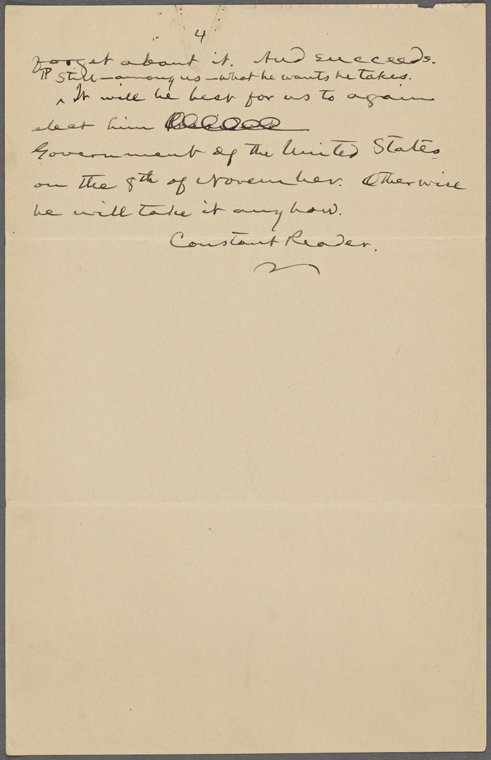 4
forget about it. And succeeds.
¶ Still—among us—what he wants he takes.
^ It will be best for us to again
elect him
Government of the United States
on the 8th of November. Otherwise
he will take it anyhow.
Constant Reader.